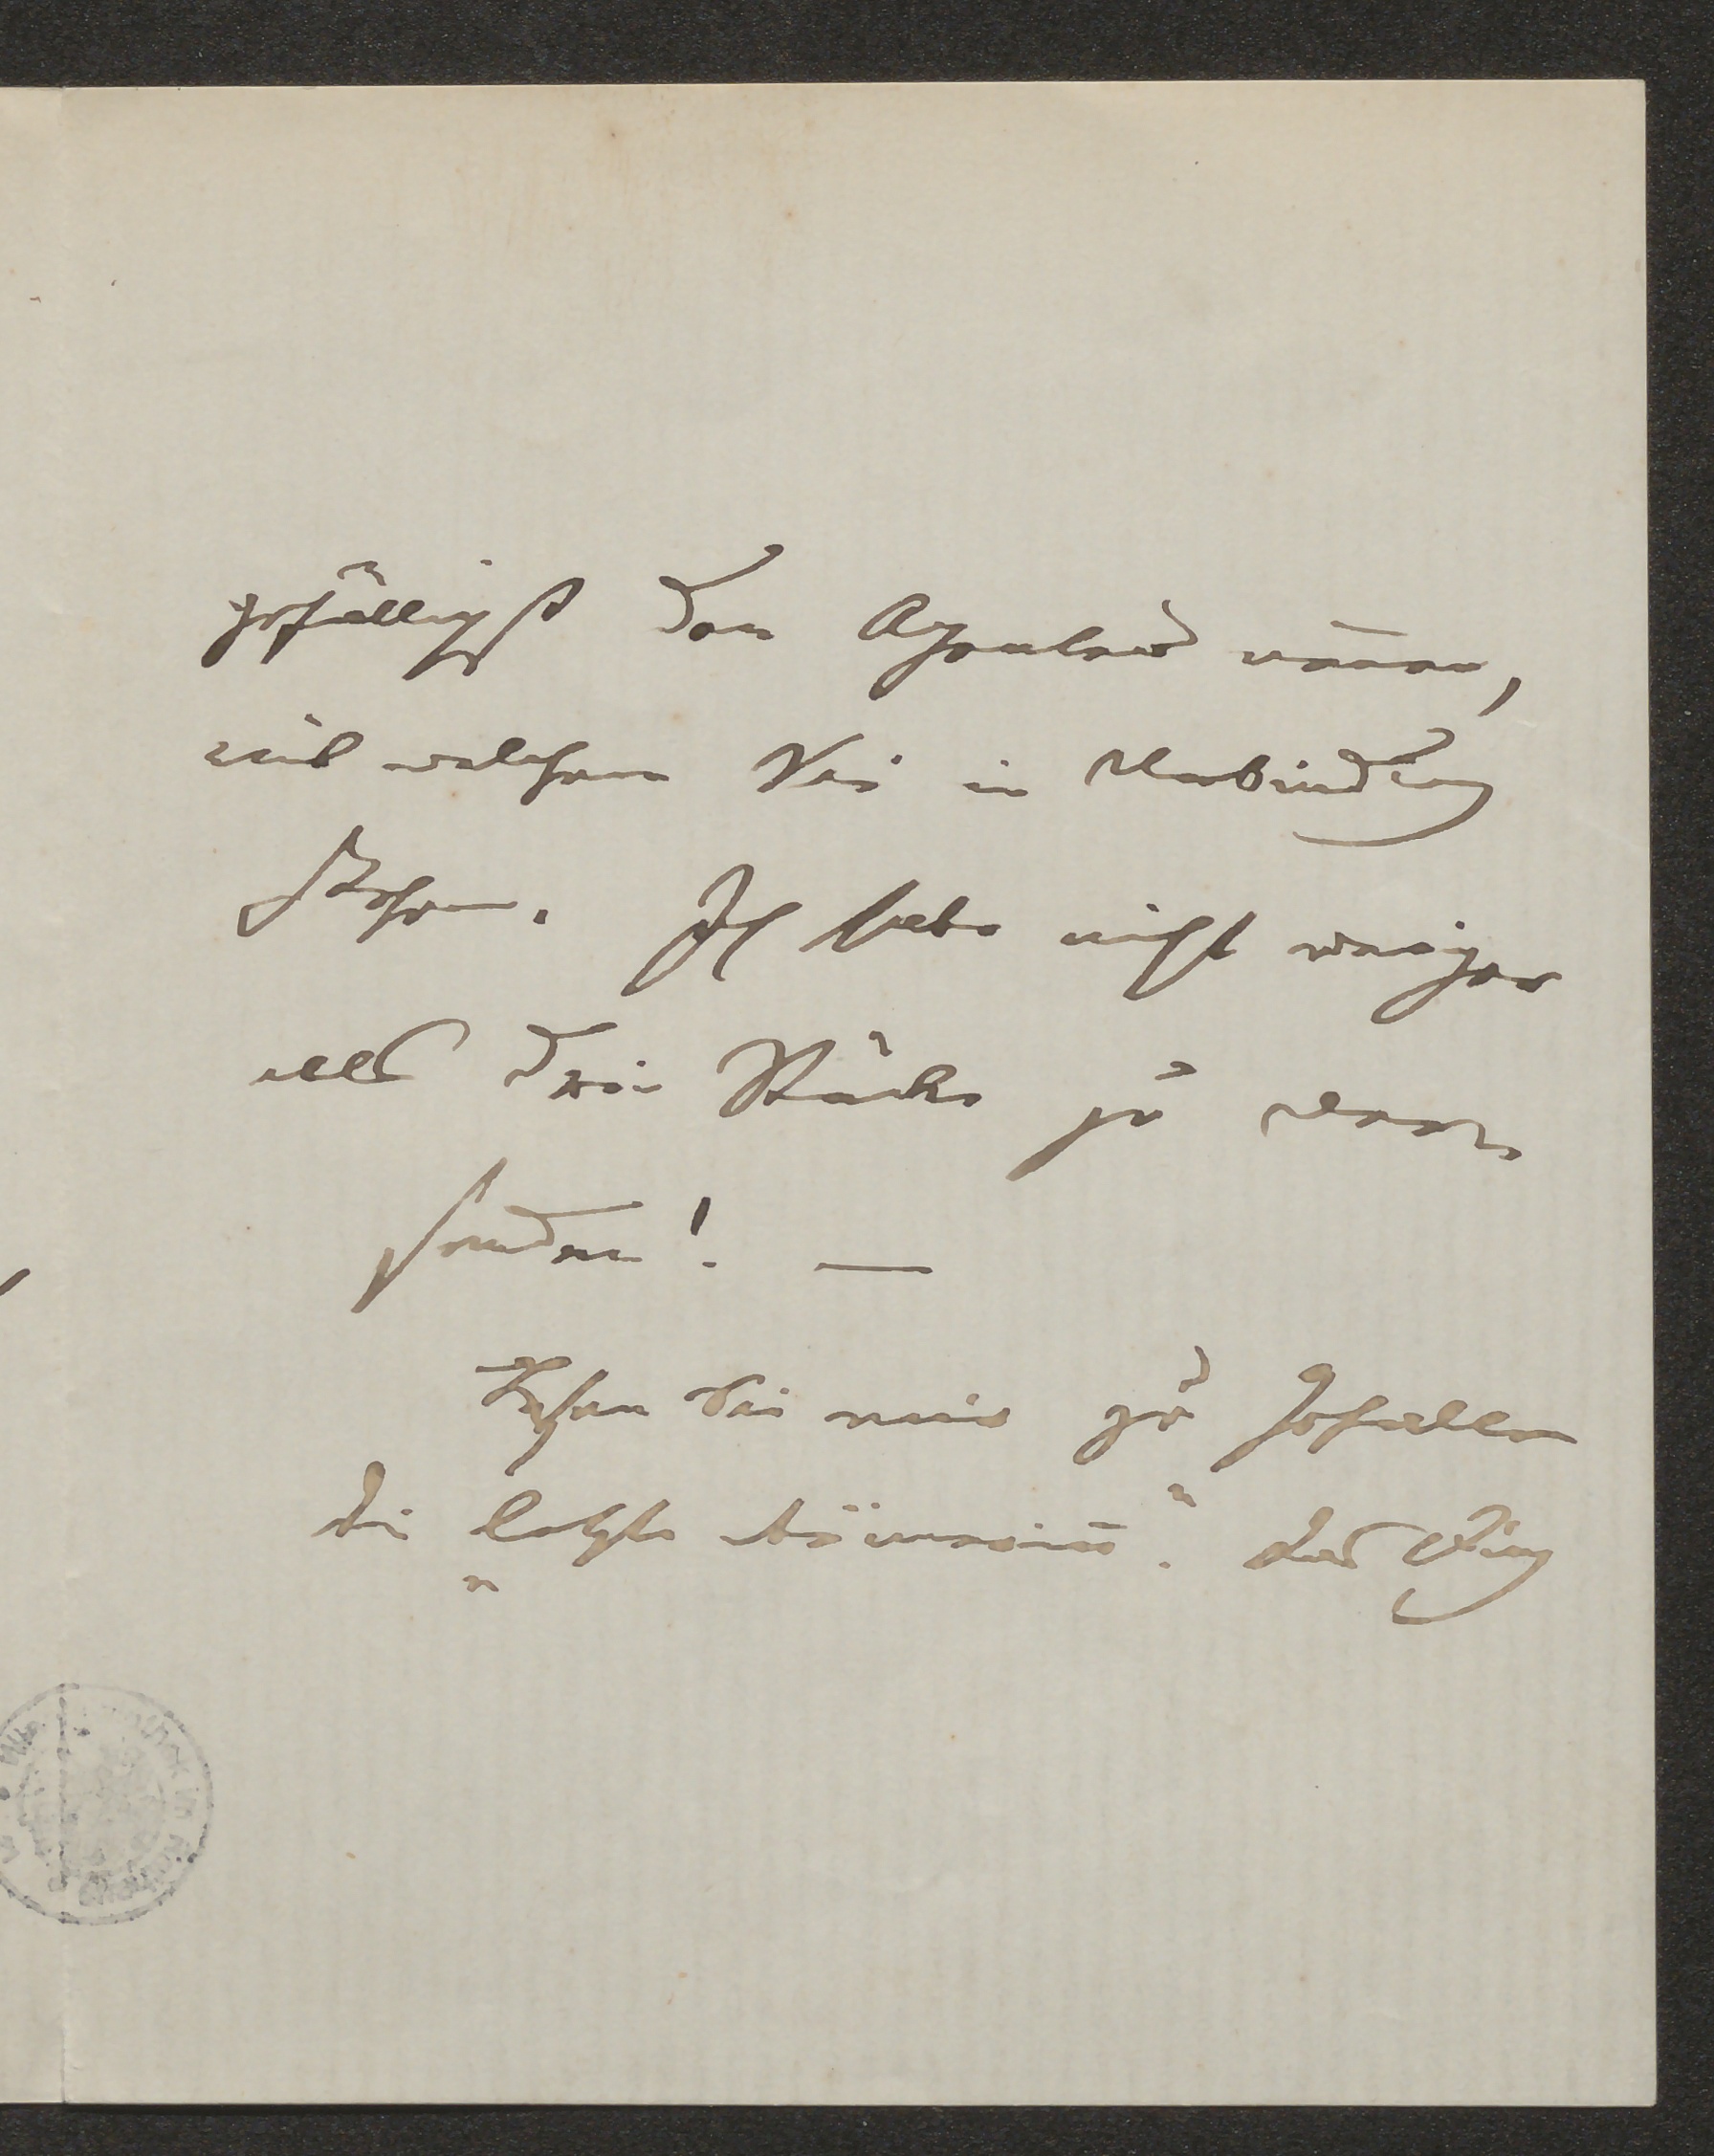 gefälligst den Agenten nennen,
mit welchem Sie in Verbindung
stehen. Ich habe nicht weniger
als drei Stücke zu ver-
senden! —
Sie mir zu Gefallen
die „letzte Römerin“. Das Ding